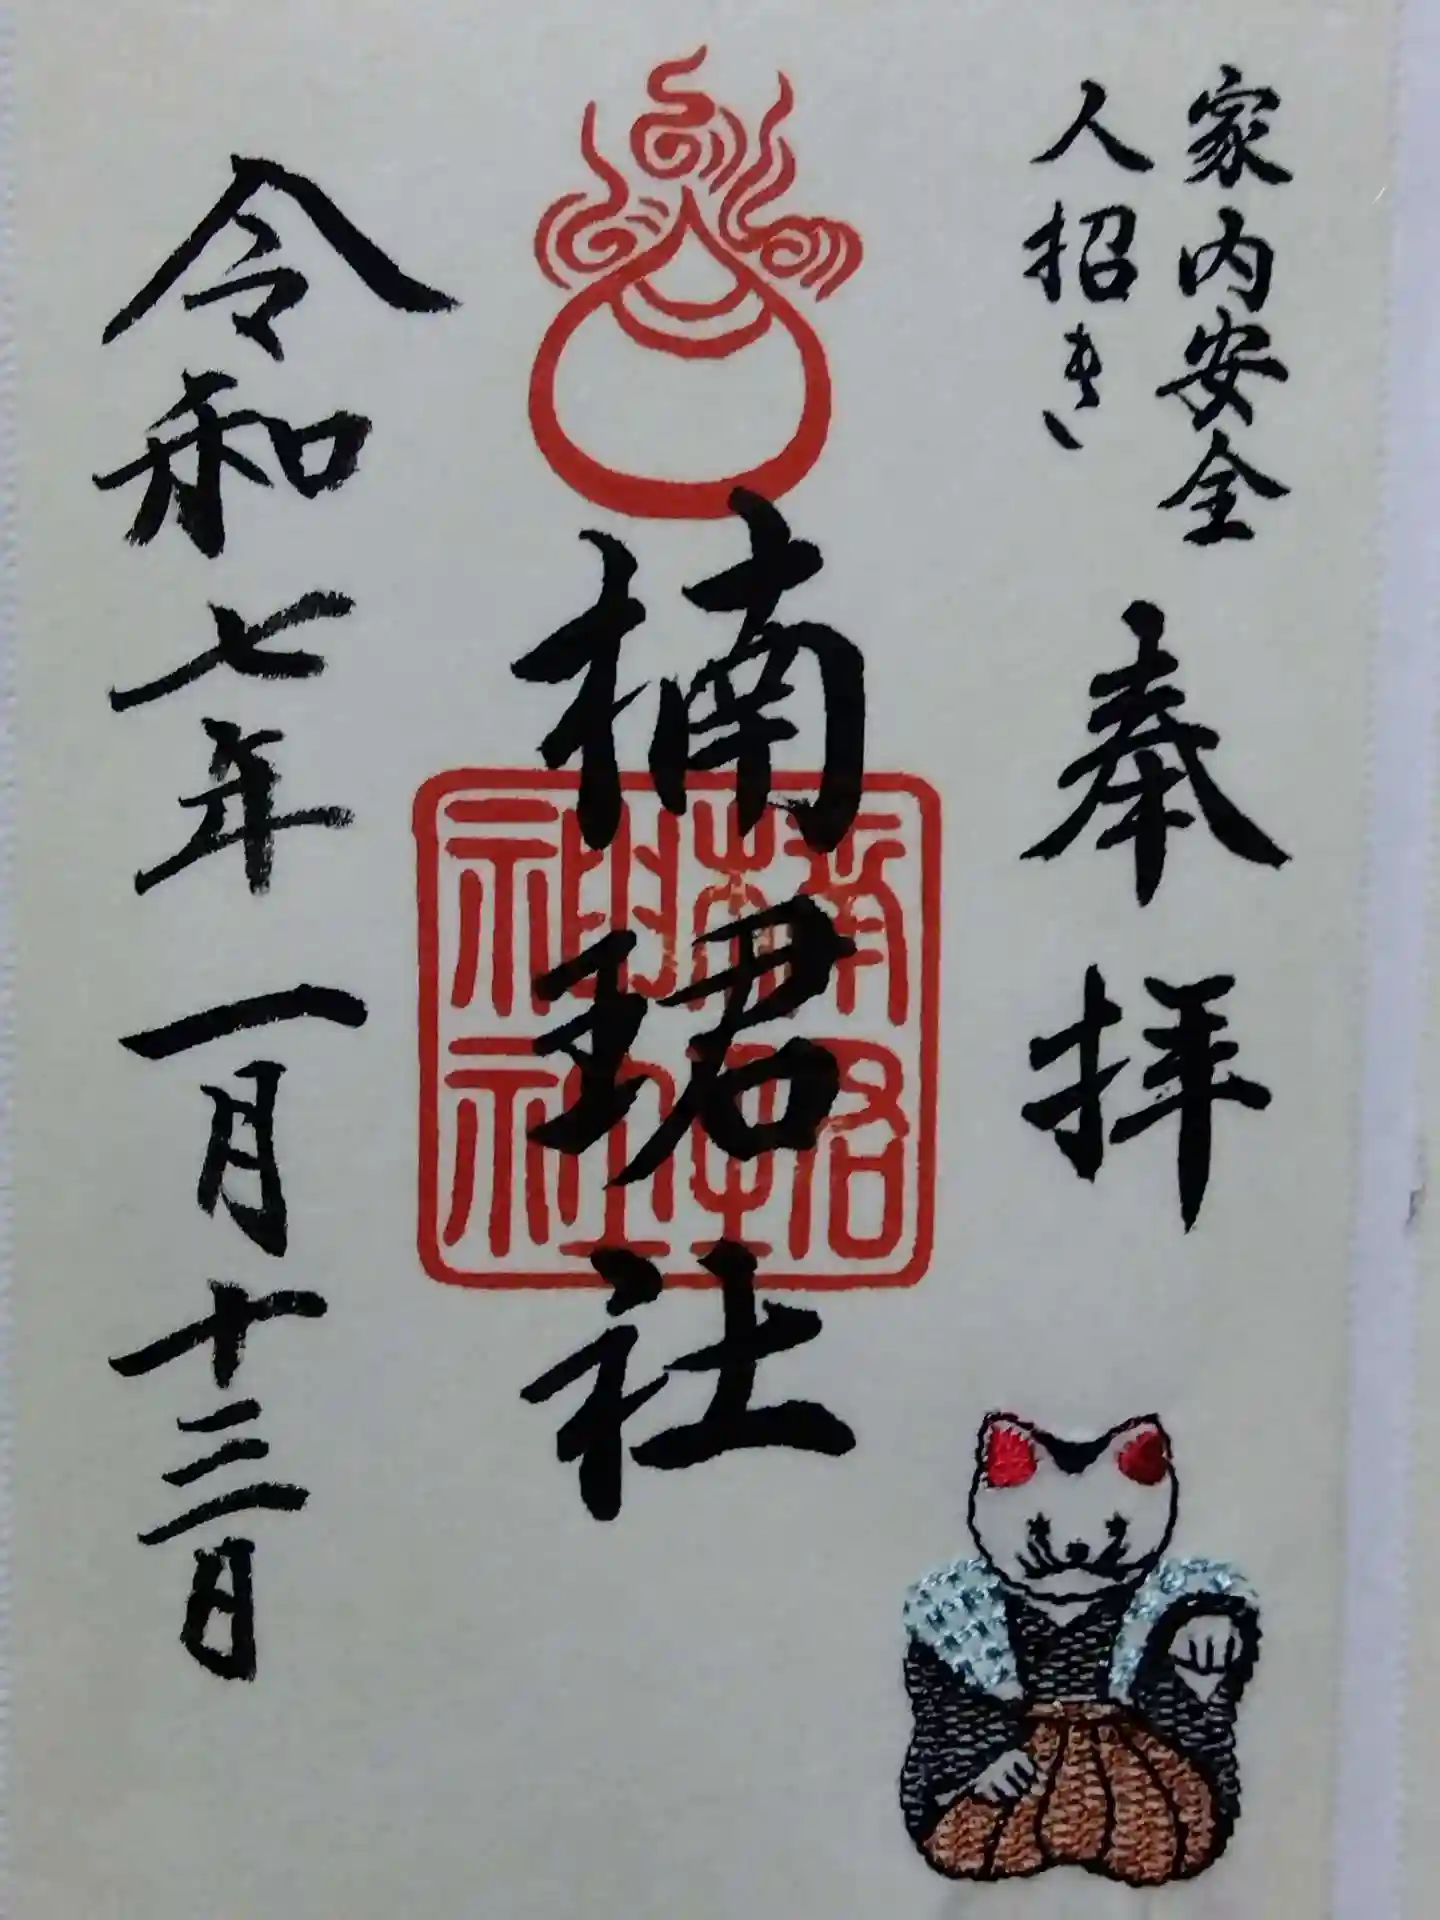 家内安全
人招き
奉拝
楠珺社
楠珺神社
令和七年一月十三日